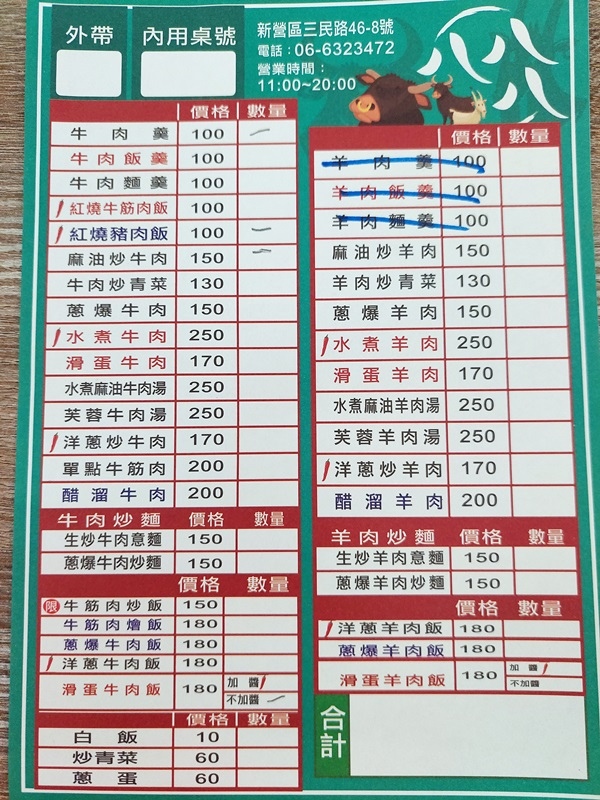 外帶
內用桌號
新營區三民路46-8號
電話：06-6323472
營業時間：
11:00~20:00
價格 數量
牛肉羹 100
牛肉飯羹 100
牛肉麵羹 100
紅燒牛筋肉飯 100
紅燒豬肉飯 100
麻油炒牛肉 150
牛肉炒青菜 130
蔥爆牛肉 150
水煮牛肉 250
滑蛋牛肉 170
水煮麻油牛肉湯 250
芙蓉牛肉湯 250
洋蔥炒牛肉 170
單點牛筋肉 200
醋溜牛肉 200
牛肉炒麵 價格 數量
生炒牛肉意麵 150
蔥爆牛肉炒麵 150
價格 數量
限 牛筋肉炒飯 150
牛筋肉燴飯 180
蔥爆牛肉飯 180
洋蔥牛肉飯 180
滑蛋牛肉飯 180 加醬
不加醬
價格 數量
白飯 10
炒青菜 60
蔥蛋 60
價格 數量
羊肉羹 100
羊肉飯羹 100
羊肉麵羹 100
麻油炒羊肉 150
羊肉炒青菜 130
蔥爆羊肉 150
水煮羊肉 250
滑蛋羊肉 170
水煮麻油羊肉湯 250
芙蓉羊肉湯 250
洋蔥炒羊肉 170
醋溜羊肉 200
羊肉炒麵 價格 數量
生炒羊肉意麵 150
蔥爆羊肉炒麵 150
價格 數量
洋蔥羊肉飯 180
蔥爆羊肉飯 180
滑蛋羊肉飯 180 加醬
不加醬
合計